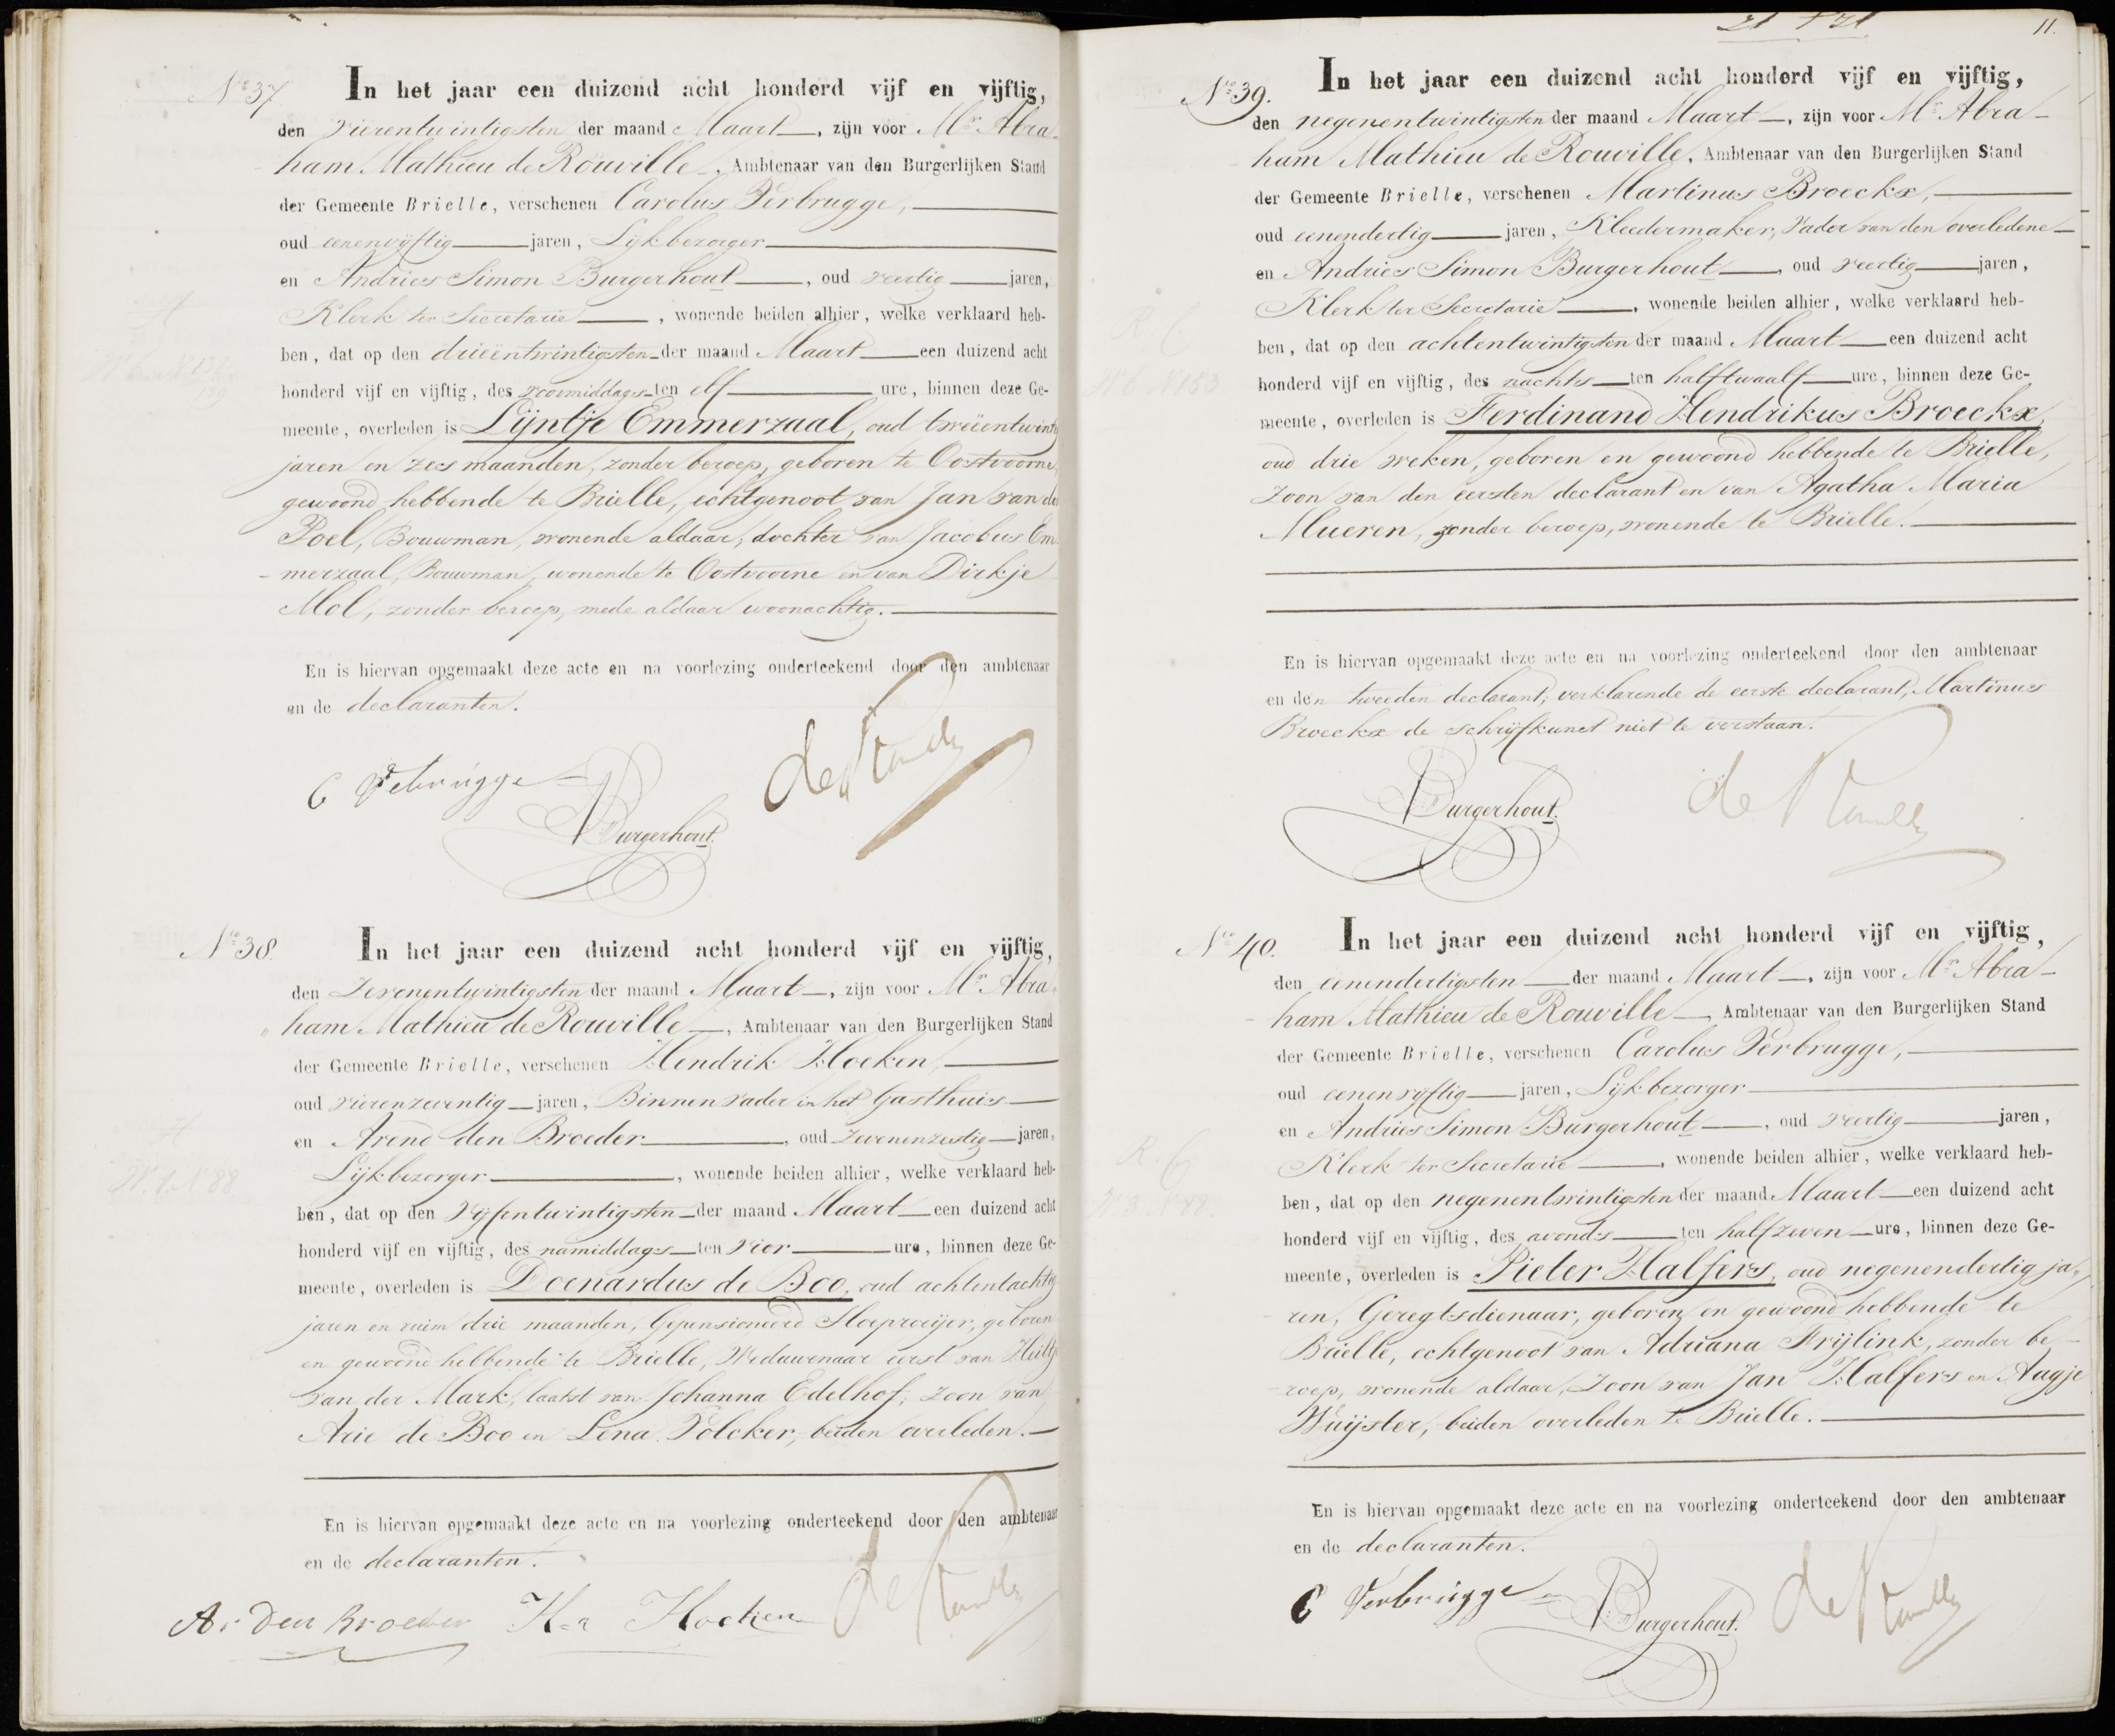 No 37.
In het jaar een duizend acht honderd vijf en vijftig,
den vierentwintigsten der maand Maart, zijn voor Mr. Abra-
ham Mathieu de Rouville, Ambtenaar van den Burgerlijken Stand
der Gemeente Brielle, verschenen Carolus Verbrugge,
oud eenenvijftig jaren, Lijkbezorger
en Andries Simon Burgerhout, oud veertig jaren,
Klerk ter Secretarie, wonende beiden alhier, welke verklaard heb-
ben, dat op den drieëntwintigsten der maand Maart een duizend acht
honderd vijf en vijftig, des voormiddags ten elf ure, binnen deze Ge-
meente, overleden is Lijntje Emmerzaal, oud tweëentwintig
jaren en zes maanden, zonder beroep, geboren te Oostvoorne,
gewoond hebbende te Brielle, echtgenoot van Jan van der
Poel, Bouwman, wonende aldaar, dochter van Jacobus Em-
merzaal, Bouwman, wonende te Oostvoorne en van Dirkje
Mol, zonder beroep, mede aldaar woonachtig.
En is hiervan opgemaakt deze acte en na voorlezing onderteekend door den ambtenaar
en de declaranten.
C Verbrugge
Burgerhout.
de Rouville
No 38.
In het jaar een duizend acht honderd vijf en vijftig,
den Zevenentwintigsten der maand Maart, zijn voor Mr. Abra-
ham Mathieu de Rouville, Ambtenaar van den Burgerlijken Stand
der Gemeente Brielle, verschenen Hendrik Hoeken,
oud vierenzeventig jaren, Binnenvader in het Gasthuis
en Arend den Broeder, oud Zevenenzestig jaren,
Lijkbezorger, wonende beiden alhier, welke verklaard heb-
ben, dat op den Vijfentwintigsten der maand Maart een duizend acht
honderd vijf en vijftig, des namiddags ten vier ure, binnen deze Ge-
meente, overleden is Doenardus de Boo, oud achtentachtig
jaren en ruim drie maanden, Gepensioneerd Sloeproeijer, geboren
en gewoond hebbende te Brielle, Weduwenaar eerst van Heiltje
van der Mark, laatst van Johanna Edelhof, zoon van
Arie de Boo en Lena Volcker, beiden overleden.
En is hiervan opgemaakt deze acte en na voorlezing onderteekend door den ambtenaar
en de declaranten.
Ar Den Broeder
Hoeken
de Rouville
11.
No 39.
In het jaar een duizend acht honderd vijf en vijftig,
den negenentwintigsten der maand Maart, zijn voor Mr. Abra-
ham Mathieu de Rouville, Ambtenaar van den Burgerlijken Stand
der Gemeente Brielle, verschenen Martinus Broeckx,
oud eenendertig jaren, Kleedermaker, Vader van den overledene
en Andries Simon Burgerhout, oud veertig jaren,
Klerk ter Secretarie, wonende beiden alhier, welke verklaard heb-
ben, dat op den achtentwintigsten der maand Maart een duizend acht
honderd vijf en vijftig, des nachts ten half twaalf ure, binnen deze Ge-
meente, overleden is Ferdinand Hendrikus Broeckx,
oud drie weken, geboren en gewoond hebbende te Brielle,
zoon van den eersten declarant en van Agatha Maria
Mueren, zonder beroep, wonende te Brielle.
En is hiervan opgemaakt deze acte en na voorlezing onderteekend door den ambtenaar
en den tweeden declarant; verklarende de eerste declarant, Martinus
Broeckx de schrijfkunst niet te verstaan.
Burgerhout.
de Rouville
No 40.
In het jaar een duizend acht honderd vijf en vijftig,
den eenendertigsten der maand Maart, zijn voor Mr. Abra-
ham Mathieu de Rouville, Ambtenaar van den Burgerlijken Stand
der Gemeente Brielle, verschenen Carolus Verbrugge,
oud eenenvijftig jaren, Lijkbezorger
en Andries Simon Burgerhout, oud veertig jaren,
Klerk ter Secretarie, wonende beiden alhier, welke verklaard heb-
ben, dat op den negenentwintigsten der maand Maart een duizend acht
honderd vijf en vijftig, des avonds ten half zeven ure, binnen deze Ge-
meente, overleden is Pieter Halfers, oud negenendertig ja-
ren, Geregtsdienaar, geboren en gewoond hebbende te
Brielle, echtgenoot van Adriana Frijlink, zonder be-
roep, wonende aldaar, Zoon van Jan Halfers en Aagje
Wuijster, beiden overleden te Brielle.
En is hiervan opgemaakt deze acte en na voorlezing onderteekend door den ambtenaar
en de declaranten.
C Verbrugge
Burgerhout.
de Rouville